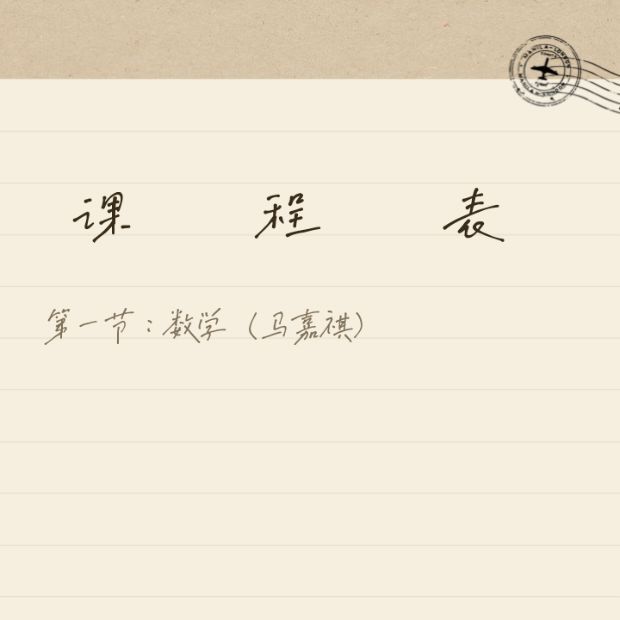 课 程 表
第一节：数学（马嘉祺）